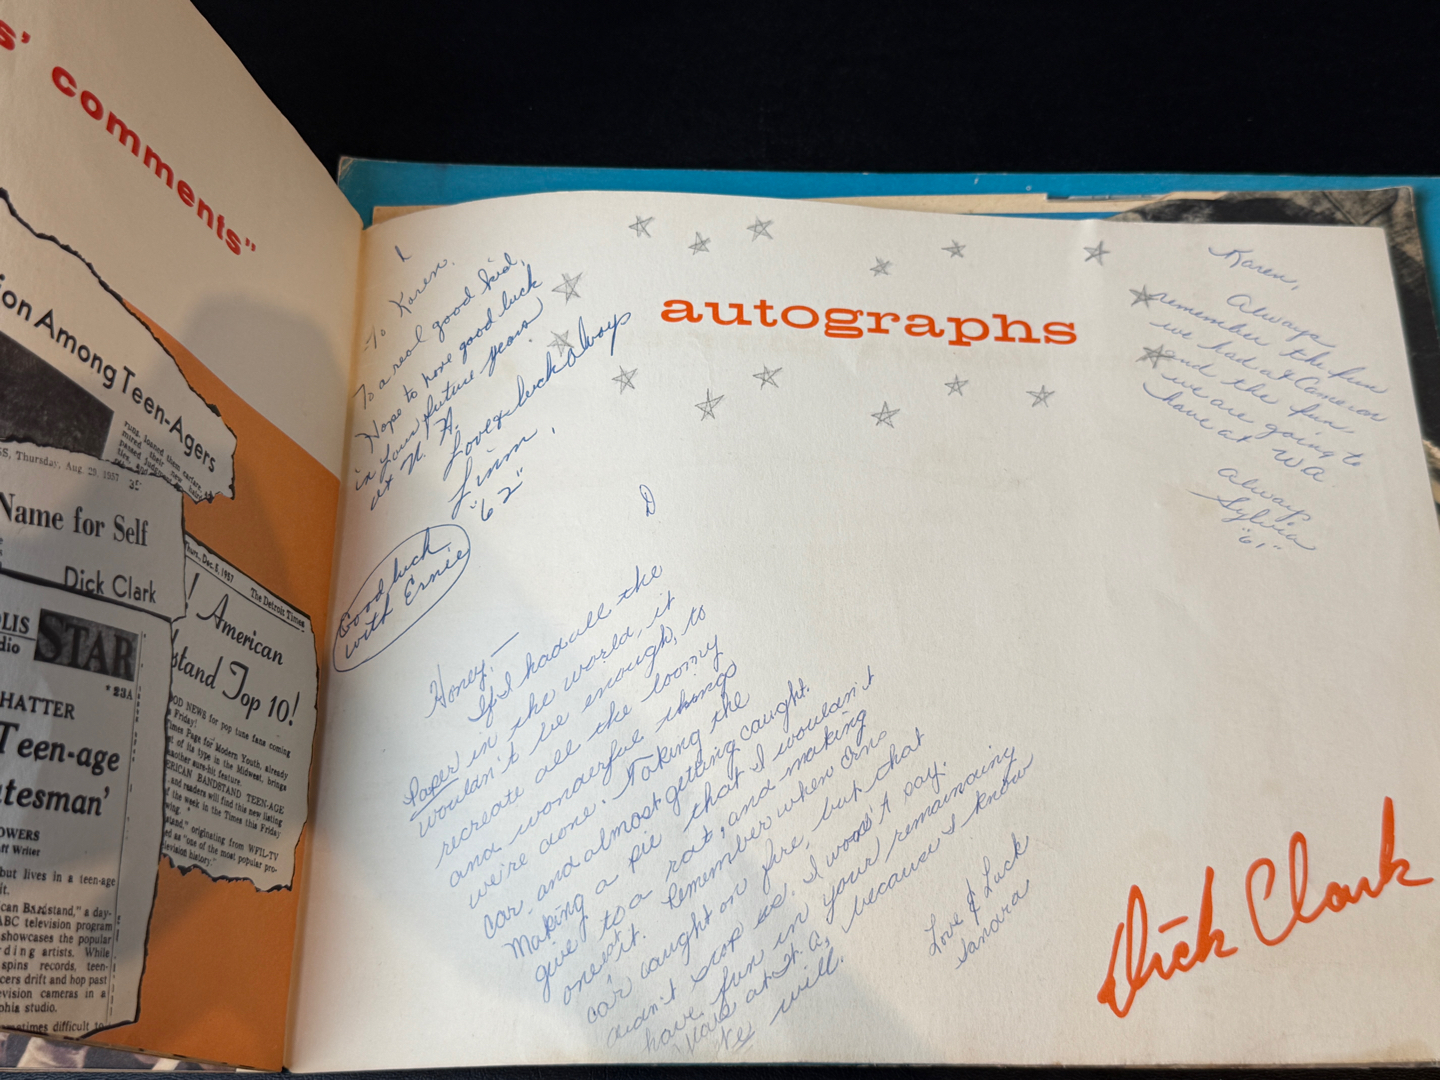 s' comments"
ion Among Teen-Agers
runs, loaned them carfare,
mired their new hair
passed judgment
ties, and
SS, Thursday, Aug. 29, 1957
Name for Self
Dick Clark
OLIS
dio
STAR
*23A
HATTER
Teen-age
tesman'
OWERS
ff Writer
but lives in a teen-age
it.
can Bandstand," a day-
ABC television program
showcases the popular
ding artists. While
spins records, teen-
cers drift and hop past
vision cameras in a
phia studio.
metimes difficult to
Thurs., Dec. 5, 1957
The Detroit Times
! American
stand Top 10!
OOD NEWS for pop tune fans coming
Friday!
Times Page for Modern Youth, already
t of its type in the Midwest, brings
another sure-hit feature.
ERICAN BANDSTAND TEEN-AGE
and readers will find this new listing
f the week in the Times this Friday
wing.
stand," originating from WFIL-TV
ed as "one of the most popular pro-
levision history."
autographs
To Karen,
To a real good kid,
Hope to have good luck
in your future years
at W. A.
Love & luck always
Linn,
"62"
Good luck
with Ernie
D
Honey,—
If I had all the
paper in the world, it
wouldn't be enough, to
recreate all the loony
and wonderful things
we're done. Taking the
car and almost getting caught.
Making a pie that I wouldn't
give to a rat, and making
one eat it. Remember when Erns
car caught on fire, but that
didn't stop us. I wood't say.
have fun in your remaining
years at W. A, because I know
we will.
Love & Luck
Sandra
Karen,
Always
remember the fun
we had at Cameron
and the fun
we are going to
have at WA.
always
Sylvia
"61"
Dick Clark